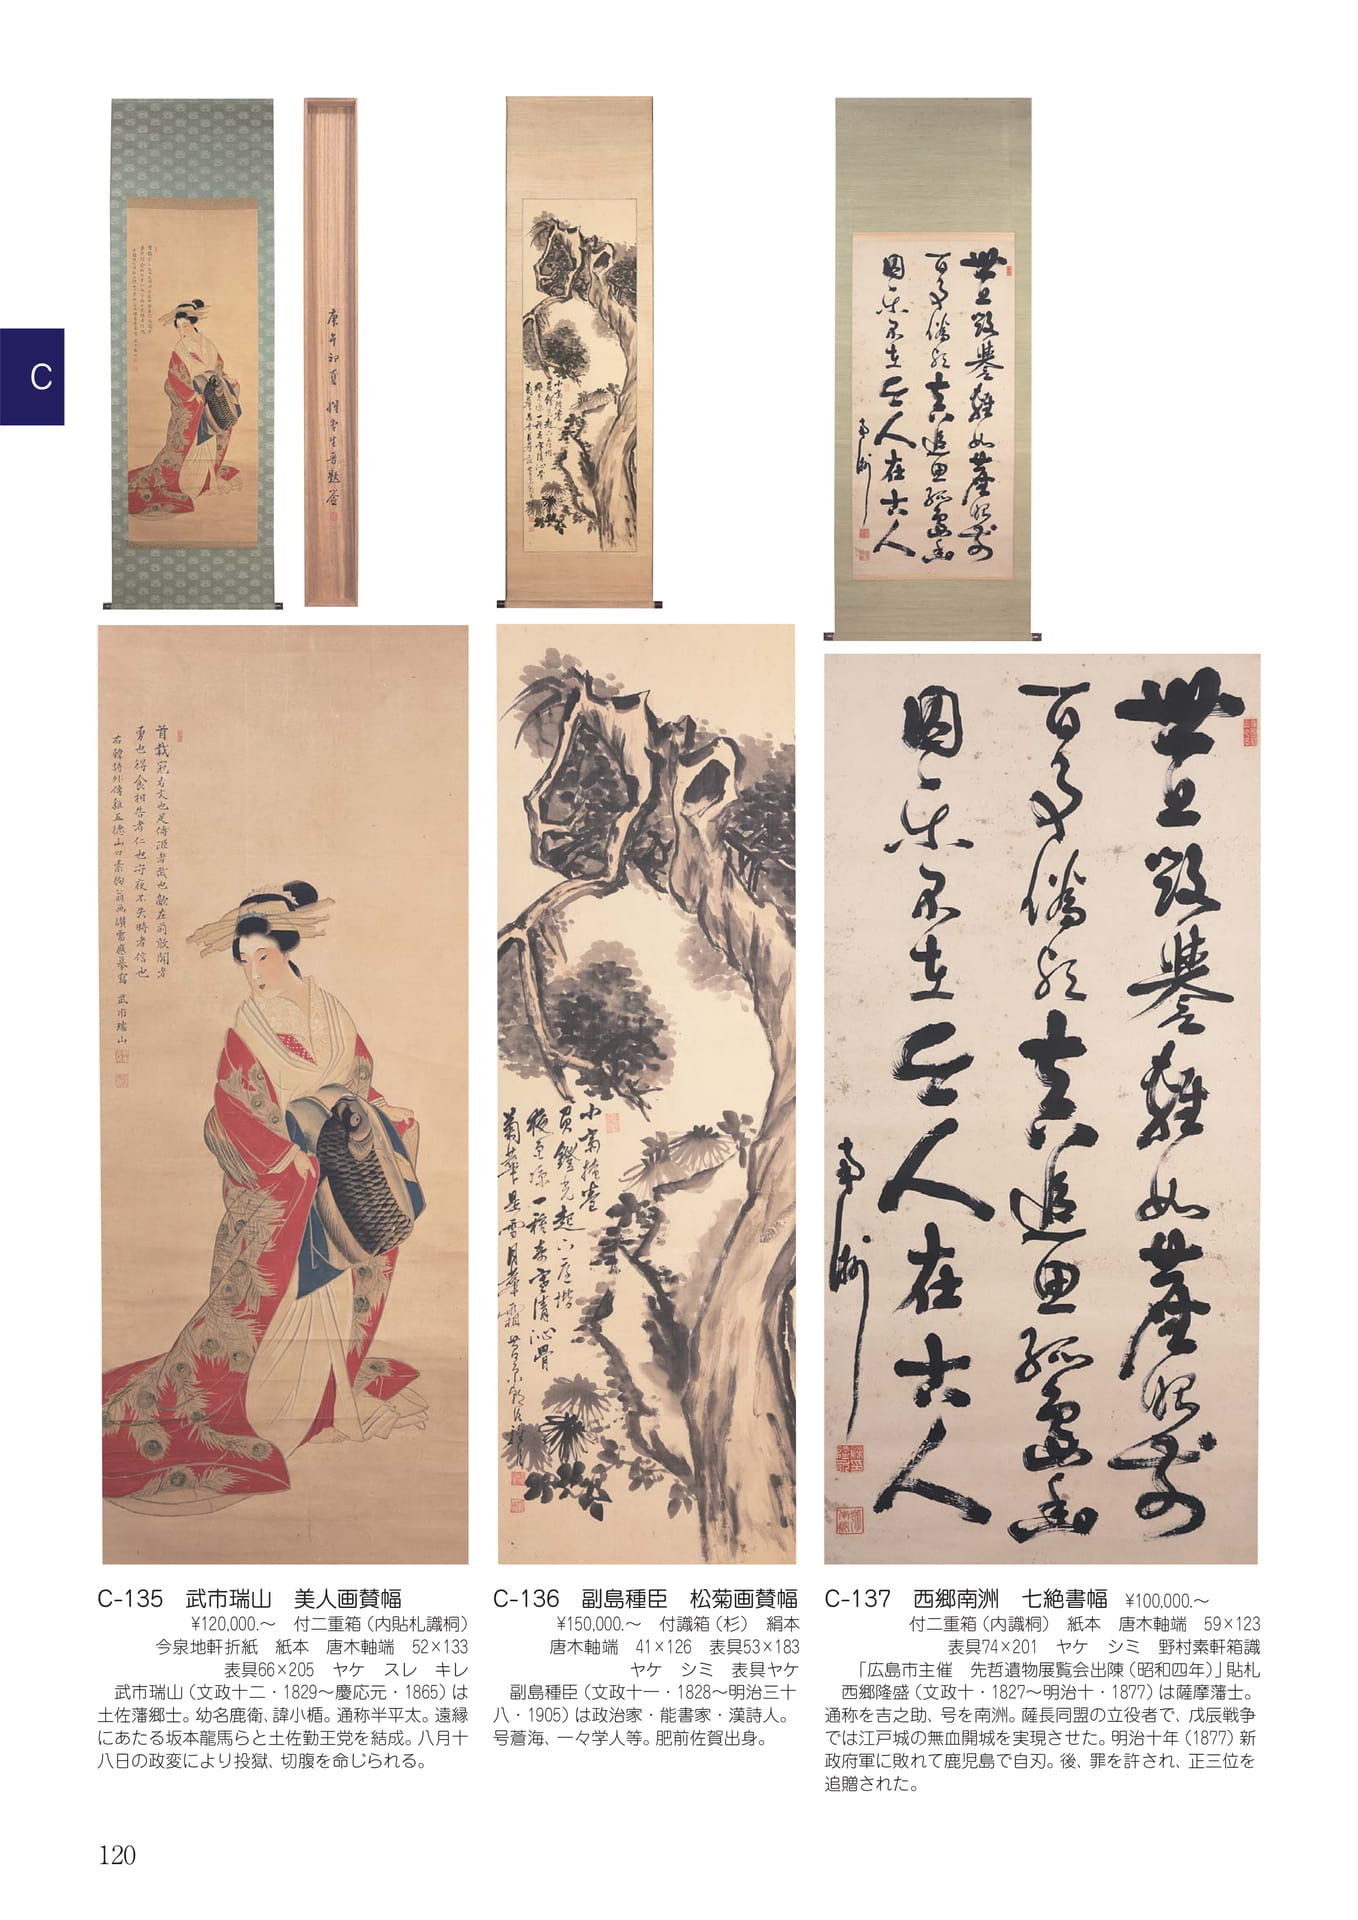 C
世上毀誉雖如塵
百事
真追思孤島
図
不在今人在古人
南洲
首載冠者文也足傅距者武也敵在前敢闘者
勇也得食相告者仁也守夜不失時者信也
武市瑞山
菊華是雪月華霜
C-135　武市瑞山　美人画賛幅
¥120,000.～　付二重箱（内貼札識桐）
今泉地軒折紙　紙本　唐木軸端　52×133
表具66×205　ヤケ　スレ　キレ
武市瑞山（文政十二・1829～慶応元・1865）は
土佐藩郷士。幼名鹿衛、諱小楯。通称半平太。遠縁
にあたる坂本龍馬らと土佐勤王党を結成。八月十
八日の政変により投獄、切腹を命じられる。
C-136　副島種臣　松菊画賛幅
¥150,000.～　付識箱（杉）　絹本
唐木軸端　41×126　表具53×183
ヤケ　シミ　表具ヤケ
副島種臣（文政十一・1828～明治三十
八・1905）は政治家・能書家・漢詩人。
号蒼海、一々学人等。肥前佐賀出身。
C-137　西郷南洲　七絶書幅　¥100,000.～
付二重箱（内識桐）　紙本　唐木軸端　59×123
表具74×201　ヤケ　シミ　野村素軒箱識
「広島市主催　先哲遺物展覧会出陳（昭和四年）」貼札
西郷隆盛（文政十・1827～明治十・1877）は薩摩藩士。
通称を吉之助、号を南洲。薩長同盟の立役者で、戊辰戦争
では江戸城の無血開城を実現させた。明治十年（1877）新
政府軍に敗れて鹿児島で自刃。後、罪を許され、正三位を
追贈された。
120